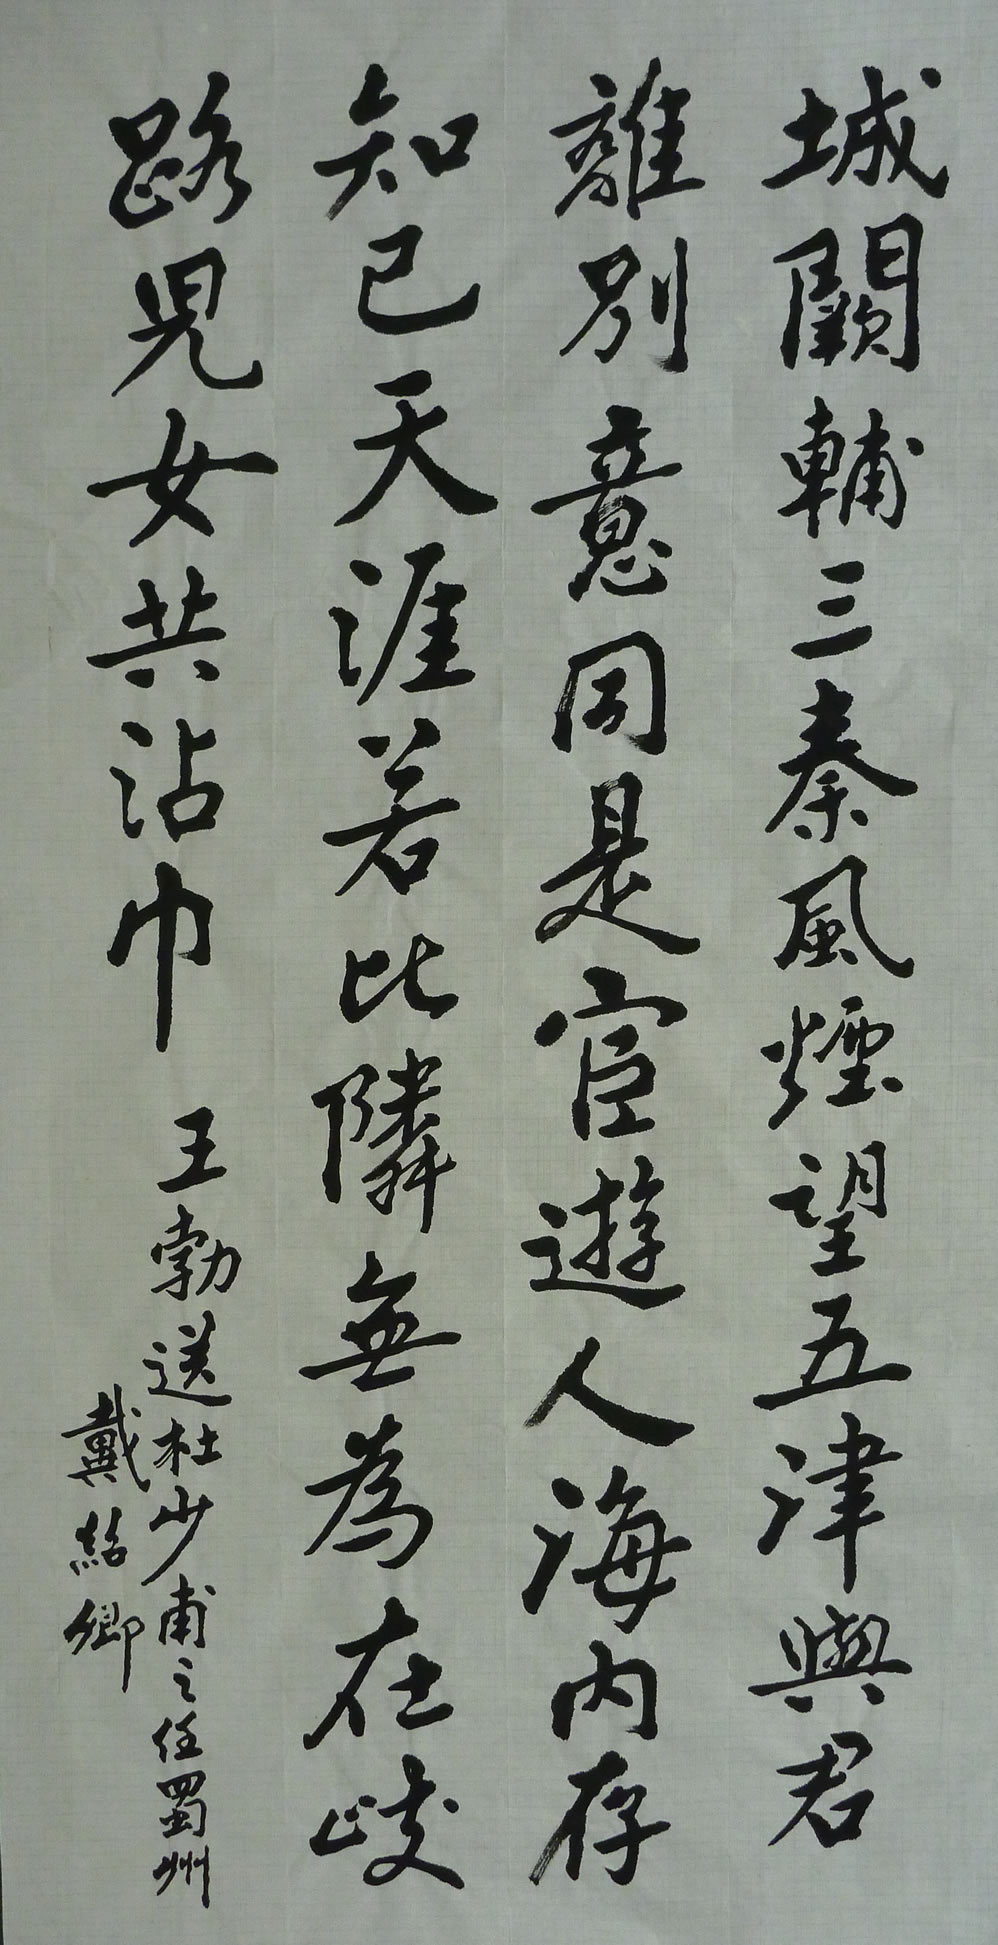 城闕輔三秦風煙望五津與君
離別意同是宦遊人海内存
知已天涯若比隣無為在歧
路児女共沾巾
王勃送杜少甫之任蜀州
戴紹卿